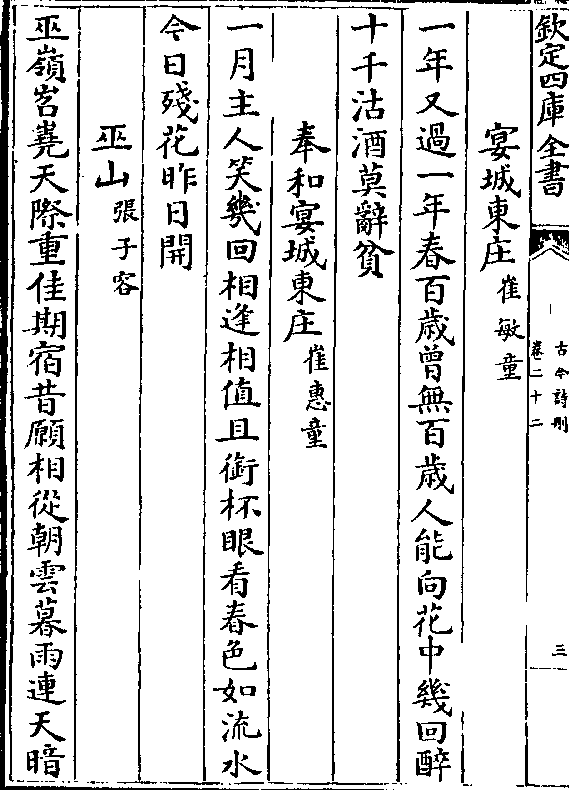 欽定四庫全書
古今詩刪
卷二十二
三
宴城東庄 崔敏童
一年又過一年春百歲曾無百歲人能向花中幾回醉
十千沽酒莫辭貧
奉和宴城東庄 崔惠童
一月主人笑幾回相逢相值且銜杯眼看春色如流水
今日殘花昨日開
巫山 張子容
巫嶺岧嶤天際重佳期宿昔願相從朝雲暮雨連天暗